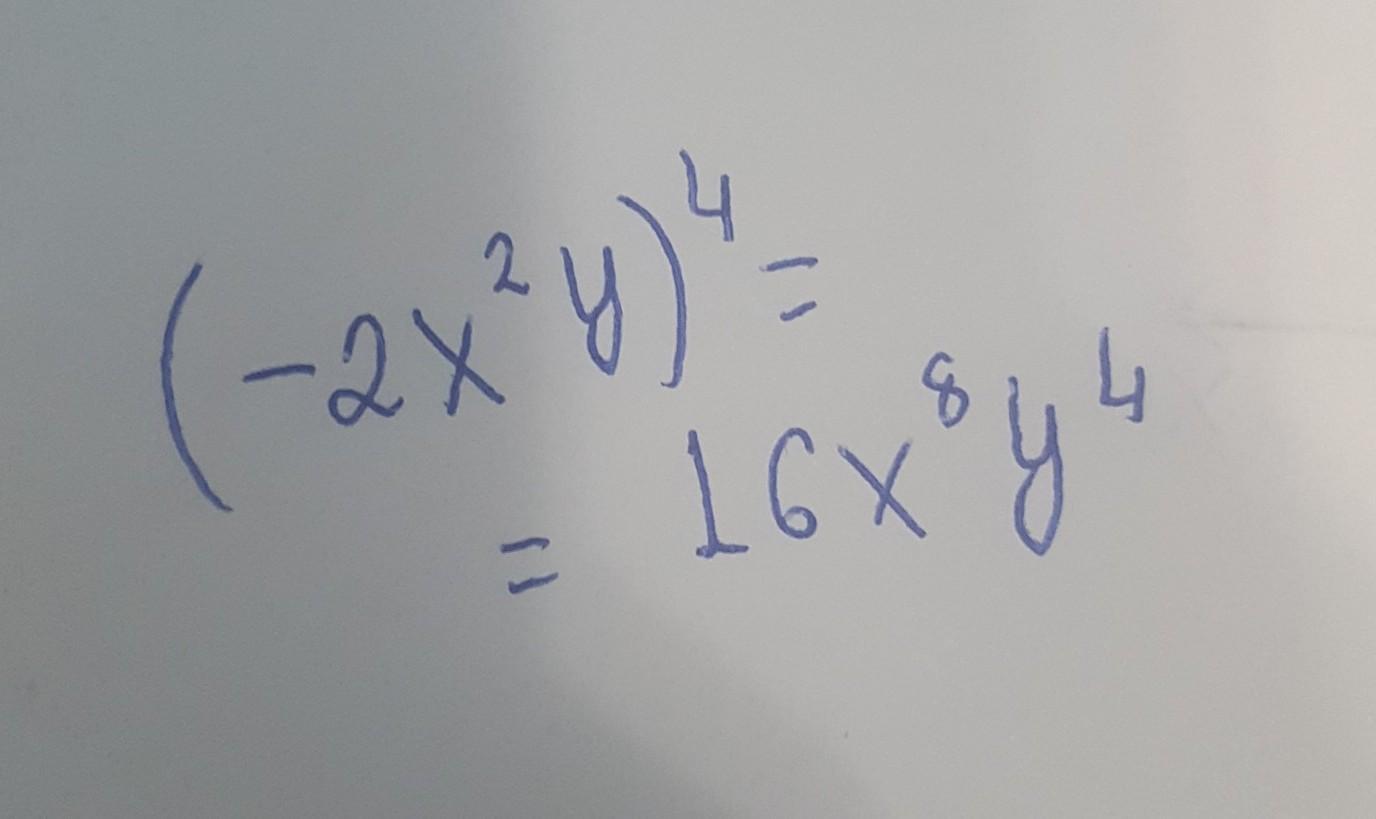 (-2x²y)⁴ =
= 16x⁸y⁴